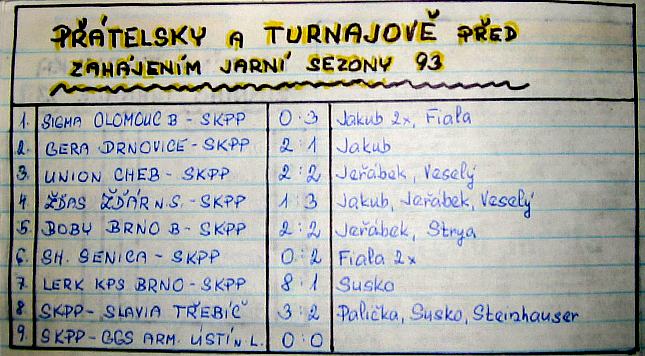 PŘÁTELSKY A TURNAJOVĚ PŘED
ZAHÁJENÍM JARNÍ SEZONY 93
1. SIGMA OLOMOUC B - SKPP 0:3 Jakub 2x, Fiala
2. GERA DRNOVICE - SKPP 2:1 Jakub
3. UNION CHEB - SKPP 2:2 Jeřábek, Veselý
4. ŽĎAS ŽĎÁR N.S. - SKPP 1:3 Jakub, Jeřábek, Veselý
5. BOBY BRNO B - SKPP 2:2 Jeřábek, Strya
6. SH. SENICA - SKPP 0:2 Fiala 2x
7. LERK KPS BRNO - SKPP 8:1 Susko
8. SKPP - SLAVIA TŘEBÍČ 3:2 Palička, Susko, Steinhauser
9. SKPP - GGS ARM. ÚSTÍ N L. 0:0